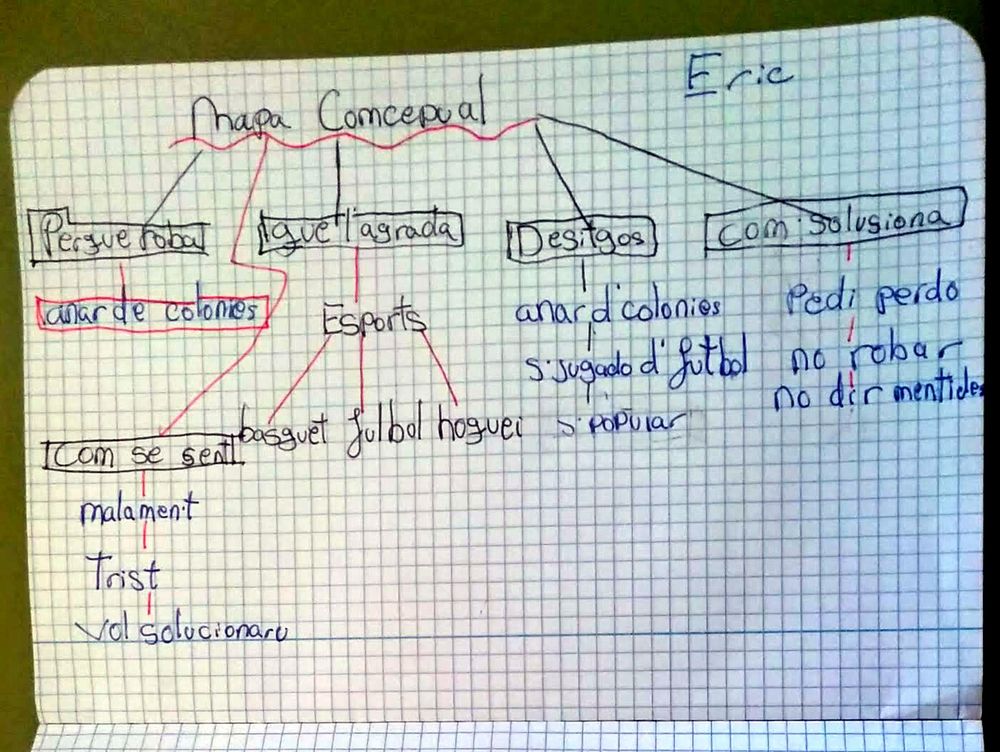 Eric
Mapa Comcepual
Pergue roba
Igue l'agrada
Desitgos
Com solusiona
anar de colonies
Esports
anar d'colonies
Pedi perdo
s'jugado d'futbol
no robar
no dir mentides
basguet futbol hoguei
s'popular
Com se sent
malament
Trist
Vol solucionaru